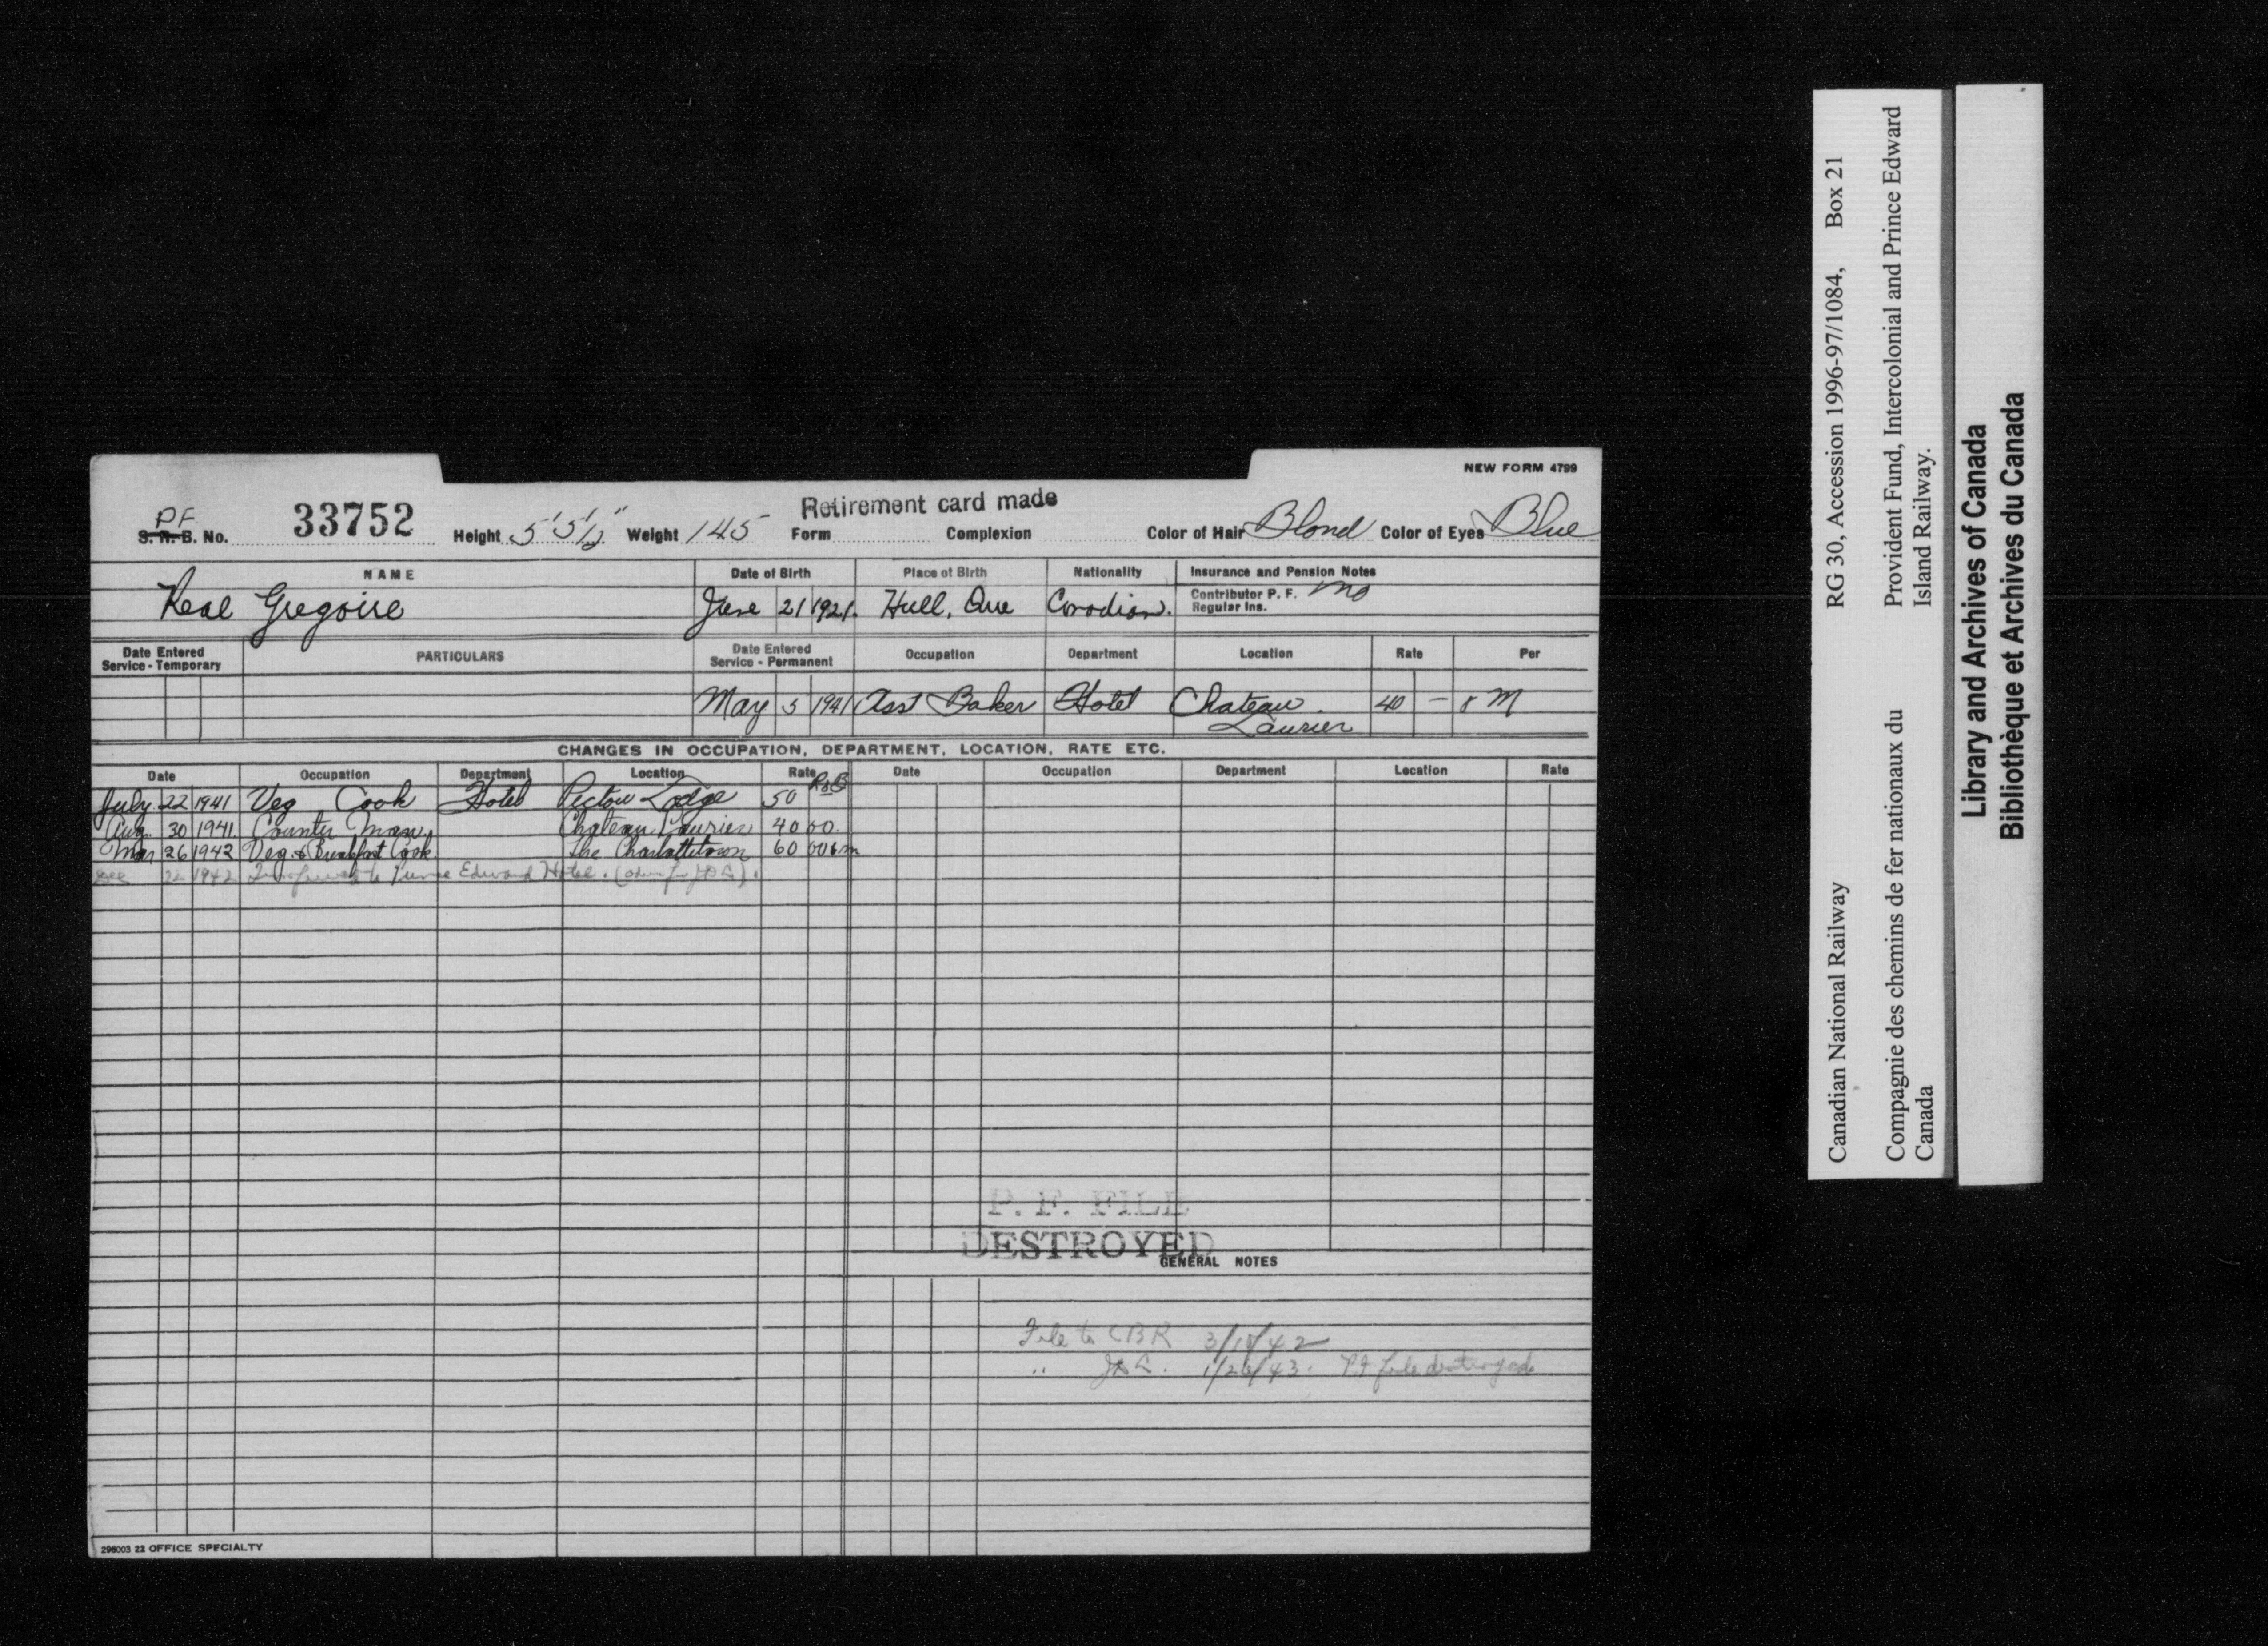 NEW FORM 4799
Retirement card made
PF
S. R. B. No. 33752 Height 5'5½" Weight 145 Form Complexion Color of Hair Blond Color of Eyes Blue
NAME Date of Birth Place of Birth Nationality Insurance and Pension Notes
Real Gregoire June 21 1921. Hull, Que Canadian. Contributor P. F. no
Regular Ins.
Date Entered Service - Temporary PARTICULARS Date Entered Service - Permanent Occupation Department Location Rate Per
May 5 1941 Asst Baker Hotel Chateau Laurier 40 — M
CHANGES IN OCCUPATION, DEPARTMENT, LOCATION, RATE ETC.
Date Occupation Department Location Rate Date Occupation Department Location Rate
July 22 1941 Veg Cook Hotel Pictou Lodge 50 R&B
Aug 30 1941. Counter Man. Chateau Laurier 40 00.
Mar 26 1942 Veg. & Breakfast Cook. The Charlottetown 60 00
Dec 22 1942 Transferred to Prince Edward Hotel.
P. F. FILE
DESTROYED
GENERAL NOTES
File to CBR 3/18/42
" 1/26/43. P.F file destroyed
296003 22 OFFICE SPECIALTY
Canadian National Railway RG 30, Accession 1996-97/1084, Box 21
Compagnie des chemins de fer nationaux du Provident Fund, Intercolonial and Prince Edward
Canada Island Railway.
Library and Archives of Canada
Bibliothèque et Archives du Canada